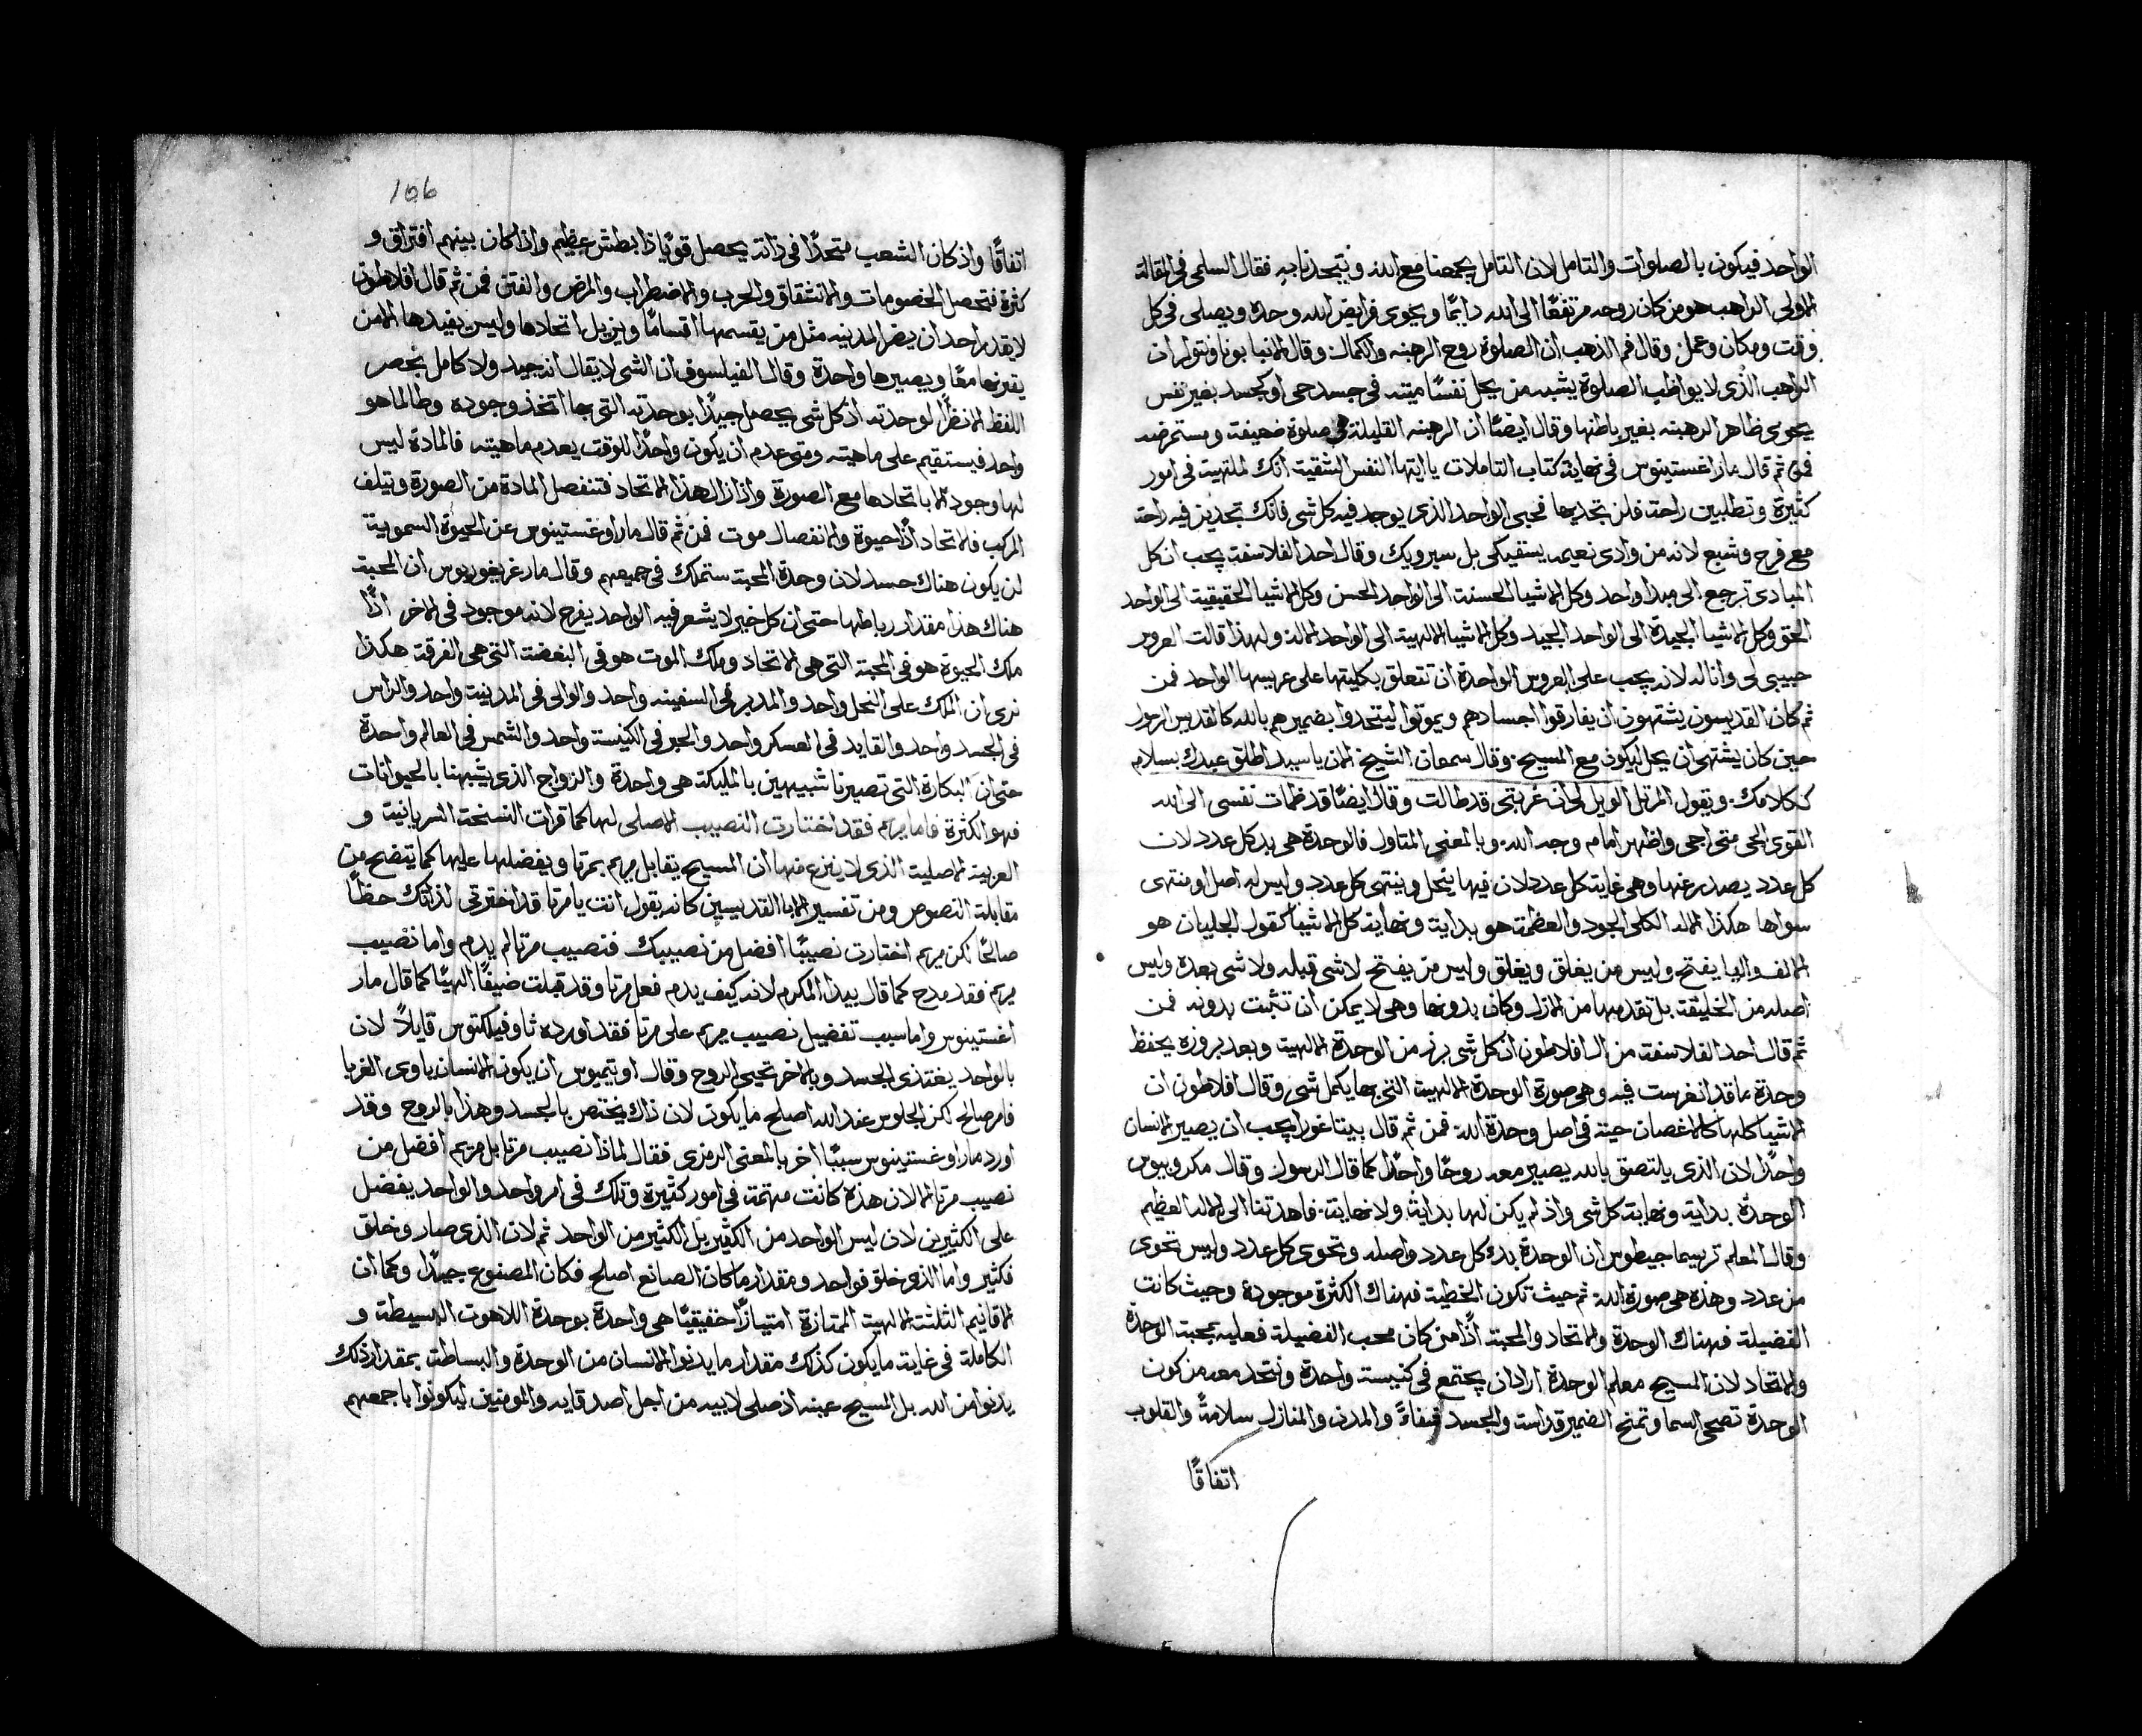 الواحد فيكون بالصلوات والتامل لان التامل يجمعنا مع الله ويتحدنا به فقال السلمى فى المقالة
الاولى الراهب هو من كان روحه مرتفعًا الى الله دايمًا ويحوى فرايض الله وحده ويصلى فى كل
وقت ومكان وعمل وقال فم الذهب ان الصلوة روح الرهبنه والكمال وقال الانبا بونا ونتورا ان
الراهب الذى لا يواظب الصلوة يشبه من يحل نفسًا ميته فى جسد حى او كجسد بغير نفس
يحوى ظاهر الرهبنه بغير باطنها وقال ايضًا ان الرهبنه القليلة هى صلوة ضعيفة ومستمرضه
فمن ثم قال مار اغستينوس فى نهاية كتاب التاملات يا ايتها النفس الشقية انك الملتهيت فى امور
كثيرة وتطلبين راحة فلن تجديها فحبى الواحد الذى يوجد فيه كل شى فانك تجدين فيه راحة
مع فرح وشبع لانه من وادى نعيمه يسقيكى بل سيرويك وقال احد الفلاسفة يجب ان كل
المبادى ترجع الى مبدا واحد وكل الاشيا الحسنة الى الواحد الحسن وكل الاشيا الحقيقية الى الواحد
الحق وكل الاشيا الجيدة الى الواحد الجيد وكل الاشيا الالهية الى الواحد الاله ولهذا قالت العروس
حبيبى لى وانا له لانه يجب على العروس الواحدة ان تتعلق بكليتها على عريسها الواحد فمن
ثم كان القديسون يشتهون ان يفارقوا اجسادهم ويموتوا ليتحدوا بضميرهم بالله كالقديس الرسول
حين كان يشتهى ان يحل ليكون مع المسيح وقال سمعان الشيخ الان يا سيد اطلق عبدك بسلام
ككلامك ويقول المرتل الويل لى ان غربتى قد طالت وقال ايضًا قد ظمات نفسى الى الله
القوى الحى متى اجى واظهر امام وجه الله وبالمعنى المتاول فالوحدة هى بدكل عدد لان
كل عدد يصدر عنها وهى غاية كل عدد لان فيها ينحل وينتهى كل عدد وليس له اصل او منتهى
سواها هكذا الاله الكلى الجود والعظمة هو بداية ونهاية كل الاشيا كقول الجليان هو
الالف واليا يفتح وليس من يغلق ويغلق وليس من يفتح لا شى قبله ولا شى بعده وليس
اصله من الخليقة بل تقدمها من الازل وكان بدونها وهى لا يمكن ان تثبت بدونه فمن
ثم قال احد الفلاسفة من ال افلاطون ان كل شى برز من الوحدة الالهية وبعد بروزه يحفظ
وحدة ما قد انغرست فيه وهى صورة الوحدة الالهية التى بها يكمل شى وقال افلاطون ان
الاشيا كلها كالاغصان حية فى اصل وحدة الله فمن ثم قال بيتاغورا يجب ان يصير الانسان
واحدًا لان الذى يالتصق بالله يصير معه روحًا واحدًا كما قال الرسول وقال مكروبيوس
الوحدة بداية ونهاية كل شى واذ لم يكن لها بداية ولا نهاية فاهدتنا الى الاله العظيم
وقال المعلم تريسما جيطوس ان الوحدة بدكل عدد واصله وتحوى كل عدد وليس تحوى
من عدد وهذه هى صورة الله ثم حيث تكون الخطية فهناك الكثرة موجودة وحيث كانت
الفضيلة فهناك الوحدة والاتحاد والمحبة اذًا من كان محب الفضيلة فعليه بمحبة الوحدة
والاتحاد لان المسيح معلم الوحدة اراد ان يجتمع فى كنيسة واحدة ونتحد معه من كون
الوحدة تصحى السما وتمنح الضمير قداسة والجسد شفاءً والمدن والمنازل سلامةً والقلوب
اتفاقًا
106
اتفاقًا واذ كان الشعب متحدًا فى ذاته يحصل قويًا ذا بطش عظيم واذا كان بينهم افتراق و
كثرة فتحصل الخصومات والانشقاق والحرب والاضطراب والمرض والفتن فمن ثم قال افلاطون
لا يقدر احد ان يضر المدينه مثل من يقسمها اقسامًا ويزيل اتحادها وليس يفيدها الا من
يقرنها معًا ويصيرها واحدة وقال الفيلسوف ان الشى لا يقال انه جيد ولا كامل بحصر
اللفظ الا نظرًا لوحدته اذ كل شى يحصل جيدًا بوحدته التى بها اتخذ وجوده وطالما هو
واحد فيستقيم على ماهيته ومتى عدم ان يكون واحدًا للوقت يعدم ماهيته فالمادة ليس
لها وجود الا باتحادها مع الصورة واذا زال هذا الاتحاد فتنفصل المادة من الصورة ويتلف
المركب فالاتحاد اذًا حيوة والانفصال موت فمن ثم قال مار اوغستينوس عن الحيوة السموية
لن يكون هناك حسد لان وحدة المحبة ستملك فى جميعهم وقال مار غريغوريوس ان المحبة
هناك هذا مقدار رباطها حتى ان كل خير لا يشعر فيه الواحد يفرح لانه موجود فى الاخر اذًا
ملك الحيوة هو فى المحبة التى هى الاتحاد وملك الموت هو فى البغضة التى هى الفرقة هكذا
نرى ان الملك على النحل واحد والمدبر على السفينه واحد والوالى فى المدينة واحد والراس
فى الجسد واحد والقايد فى العسكر واحد والحبر فى الكنيسة واحد والشمس فى العالم واحدة
حتى ان البكارة التى تصيرنا شبيهين بالمليكة هى واحدة والزواج الذى يشبهنا بالحيوانات
فهو الكثرة فاما مريم فقد اختارت النصيب الاصلى لها كما قرات النسخة السريانية و
العربية الاصلية الذى لا ينزع منها ان المسيح يقابل مريم بمرتا ويفضلها عليها كما يتضح من
مقابلة النصوص ومن تفسير الابا القديسين كانه يقول انت يا مرتا قد اخترتى لذاتك حظًا
صالحًا لكن مريم اختارت نصيبًا افضل من نصيبك فنصيب مرتا لم يدم واما نصيب
مريم فقد مدح كما قال بيدا المكرم لانه كيف يدم فعل مرتا وقد قبلت ضيفًا الهيًا كما قال مار
اغستينوس واما سبب تفضيل نصيب مريم على مرتا فقد اورده ثاوفيلكتوس قايلًا لان
بالواحد يغتذى الجسد وبالاخر تحيى الروح وقال اوتيميوس ان يكون الانسان ياوى الغربا
فامر صالح لكن الجلوس عند الله اصلح ما يكون لان ذاك يختص بالجسد وهذا بالروح وقد
اورد مار اوغستينوس سببًا اخر بالمعنى الرمزى فقال لماذا نصيب مرتا بل مريم افضل من
نصيب مرتا الا لان هذه كانت مهتمة فى امور كثيرة وتلك فى امر واحد والواحد يفضل
على الكثيرين لان ليس الواحد من الكثير بل الكثير من الواحد ثم لان الذى صار وخلق
فكثير واما الذى خلق فواحد ومقدار ما كان الصانع اصلح فكان المصنوع جيدًا وكما ان
الاقانيم الثلثة الالهية الممتازة امتيازًا حقيقيًا هى واحدة بوحدة اللاهوت البسيطة و
الكاملة فى غاية ما يكون كذلك مقدار ما يدنوا الانسان من الوحدة والبساطة بمقدار ذلك
يدنوا من الله بل المسيح عينه اذ صلى لابيه من اجل اصدقايه والمومنين ليكونوا باجمعهم